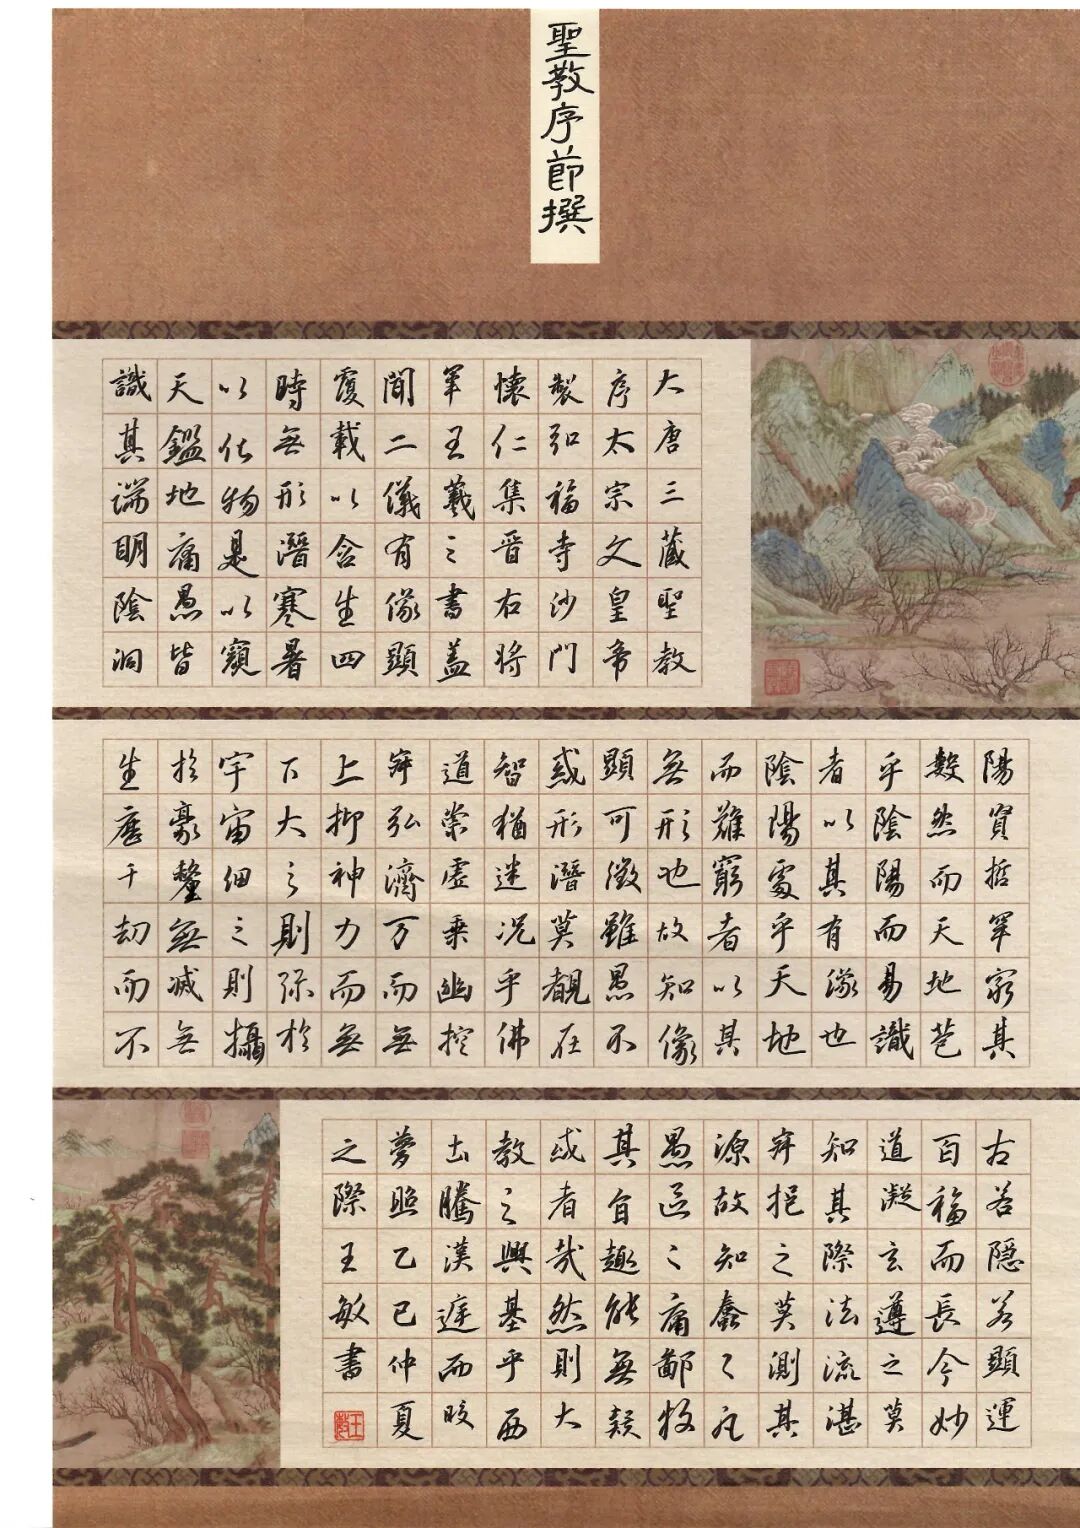 聖教序節撰
大唐三藏聖教
序太宗文皇帝
製弘福寺沙門
懷仁集晉右將
軍王羲之書蓋
聞二儀有像顯
覆載以含生四
時無形潛寒暑
以化物是以窺
天鑑地庸愚皆
識其端明陰洞
陽賢哲罕窮其
數然而天地苞
乎陰陽而易識
者以其有像也
陰陽處乎天地
而難窮者以其
無形也故知像
顯可徵雖愚不
惑形潛莫覩在
智猶迷況乎佛
道崇虛乘幽控
寂弘濟万而無
上抑神力而無
下大之則弥於
宇宙細之則攝
於豪釐無滅無
生歷千劫而不
古若隱若顯運
百福而長今妙
道凝玄遵之莫
知其際法流湛
寂挹之莫測其
源故知蠢々凡
愚區々庸鄙投
其旨趣能無疑
或者哉然則大
教之興基乎西
土騰漢庭而皎
夢照乙巳仲夏
之際王敏書
王敏